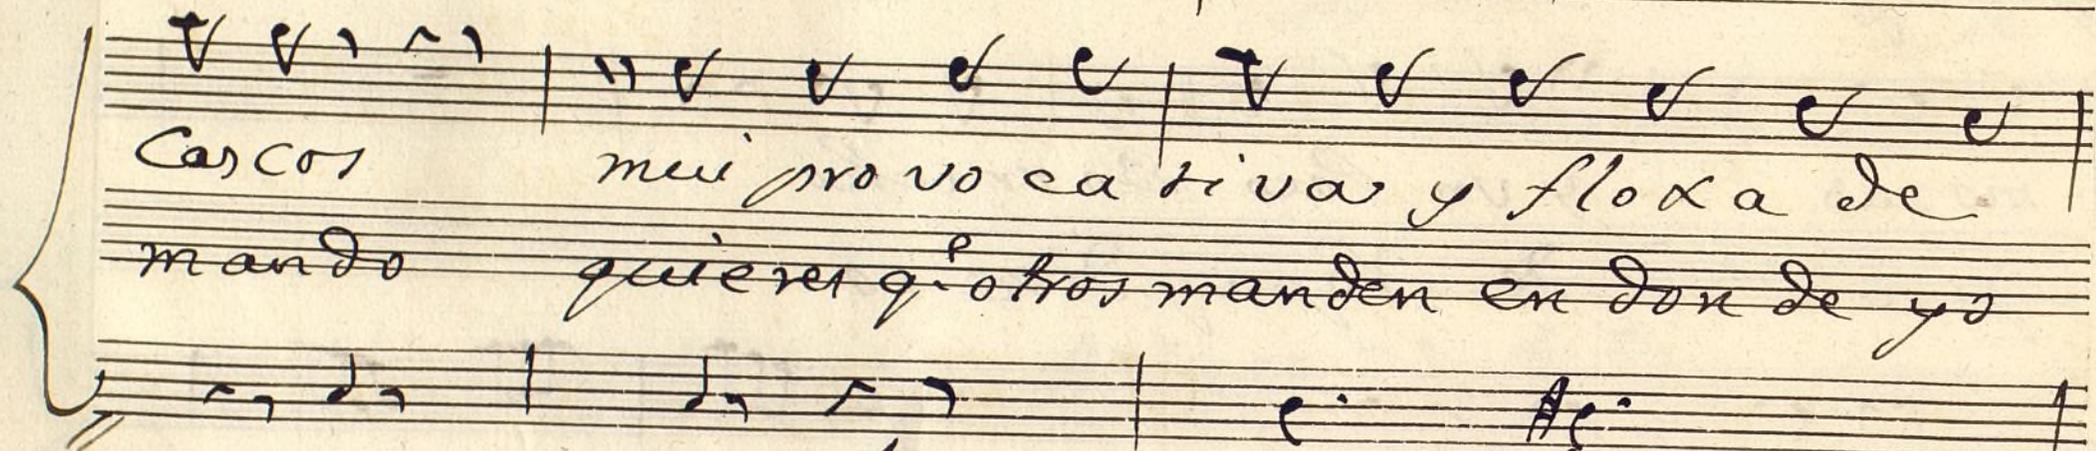 Cascos mui provocativa y floxa de
mando quieres q.e otros manden en donde yo